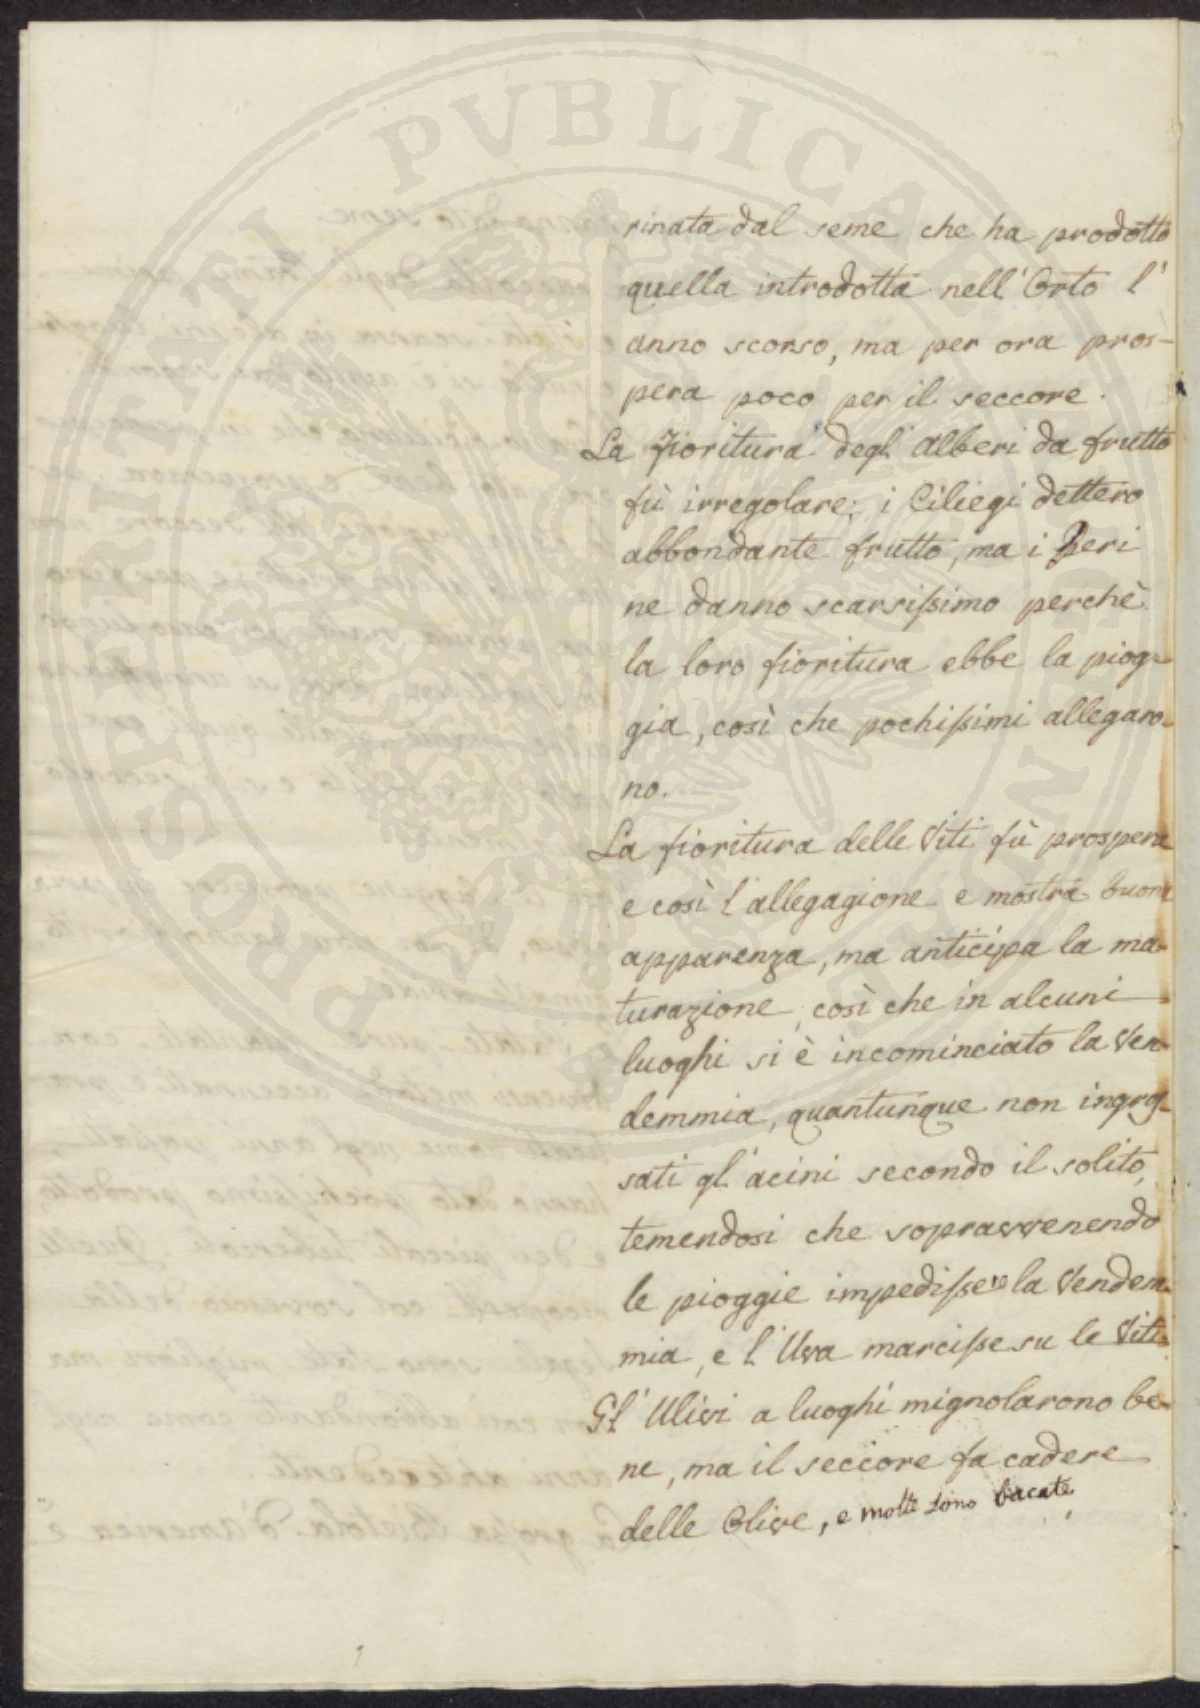 PROSPERITATI PVBLICAE AVGENDAE
rinata dal seme che ha prodotto
quella introdotta nell'Orto l'
anno scorso, ma per ora pros-
pera poco per il seccore.
La Fioritura degl'Alberi da frutto
fù irregolare; i Ciliegi dettero
abbondante frutto, ma i Peri
ne danno scarsiſsimo perchè
la loro fioritura ebbe la piog=
gia, così che pochiſsimi allegaro=
no.
La fioritura delle Viti fù prospera
e così l'allegagione e mostra buona
apparenza, ma anticipa la ma=
turazione, così che in alcuni
luoghi si è incominciato la Ven=
demmia, quantunque non ingros=
sati gl'acini secondo il solito,
temendosi che sopravvenendo
le pioggie impediſsero la Vendem=
mia, e l'Uva marciſse su le Viti.
Gl'Ulivi a luoghi mignolarono be=
ne, ma il seccore fa cadere
delle Olive, e molte sono bacate.